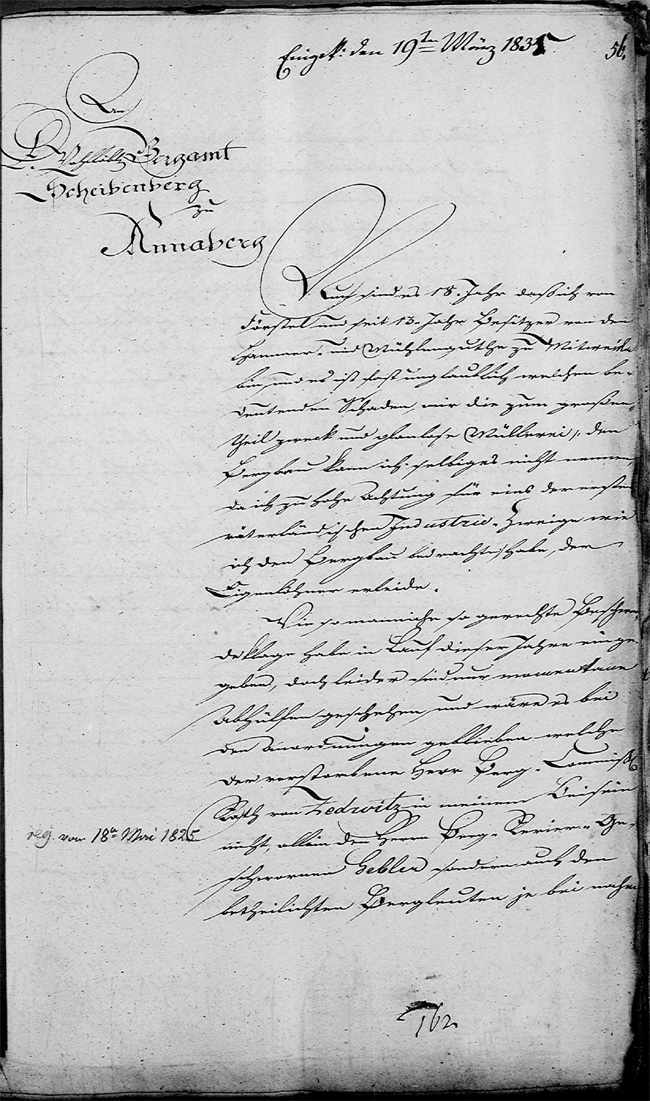 Eingeg: den 19ten März 1835
56.
An
Bergamt
Scheibenberg
zu
Annaberg
Nun sind es 18. Jahr daß ich von
Förstel und seit 13. Jahr Besitzer von dem
Hammer- und Mühlenguthe zu Mitweida
bin, und es ist fast unglaublich welchen be-
deutenden Schaden, mir die zum großen-
theil zweck und planlose Wüllerei, den
Bergbau kann ich selbiges nicht nennen,
da ich zu hohe Achtung für eins der ersten
väterländischen Industrie-Zweige wie
ich den Bergbau betrachte habe, der
Eigenlöhner erleide.
Wie so manniche so gerechte Beschwer-
deklage habe in Lauf dieser Jahre einge-
geben, doch leider sind nur momentane
Abhülfen geschehen, und wäre es bei
den Anordnungen geblieben welche
der verstorbene Herr Berg-Commiss.
Rath von Zedwitz in meinem Beisein
nicht, allein den Herrn Berg-Revier-Ge-
schwornen Gebler sondern auch den
betheilichten Bergleuten je bei nahm
reg. von 18n Mai 1825
162